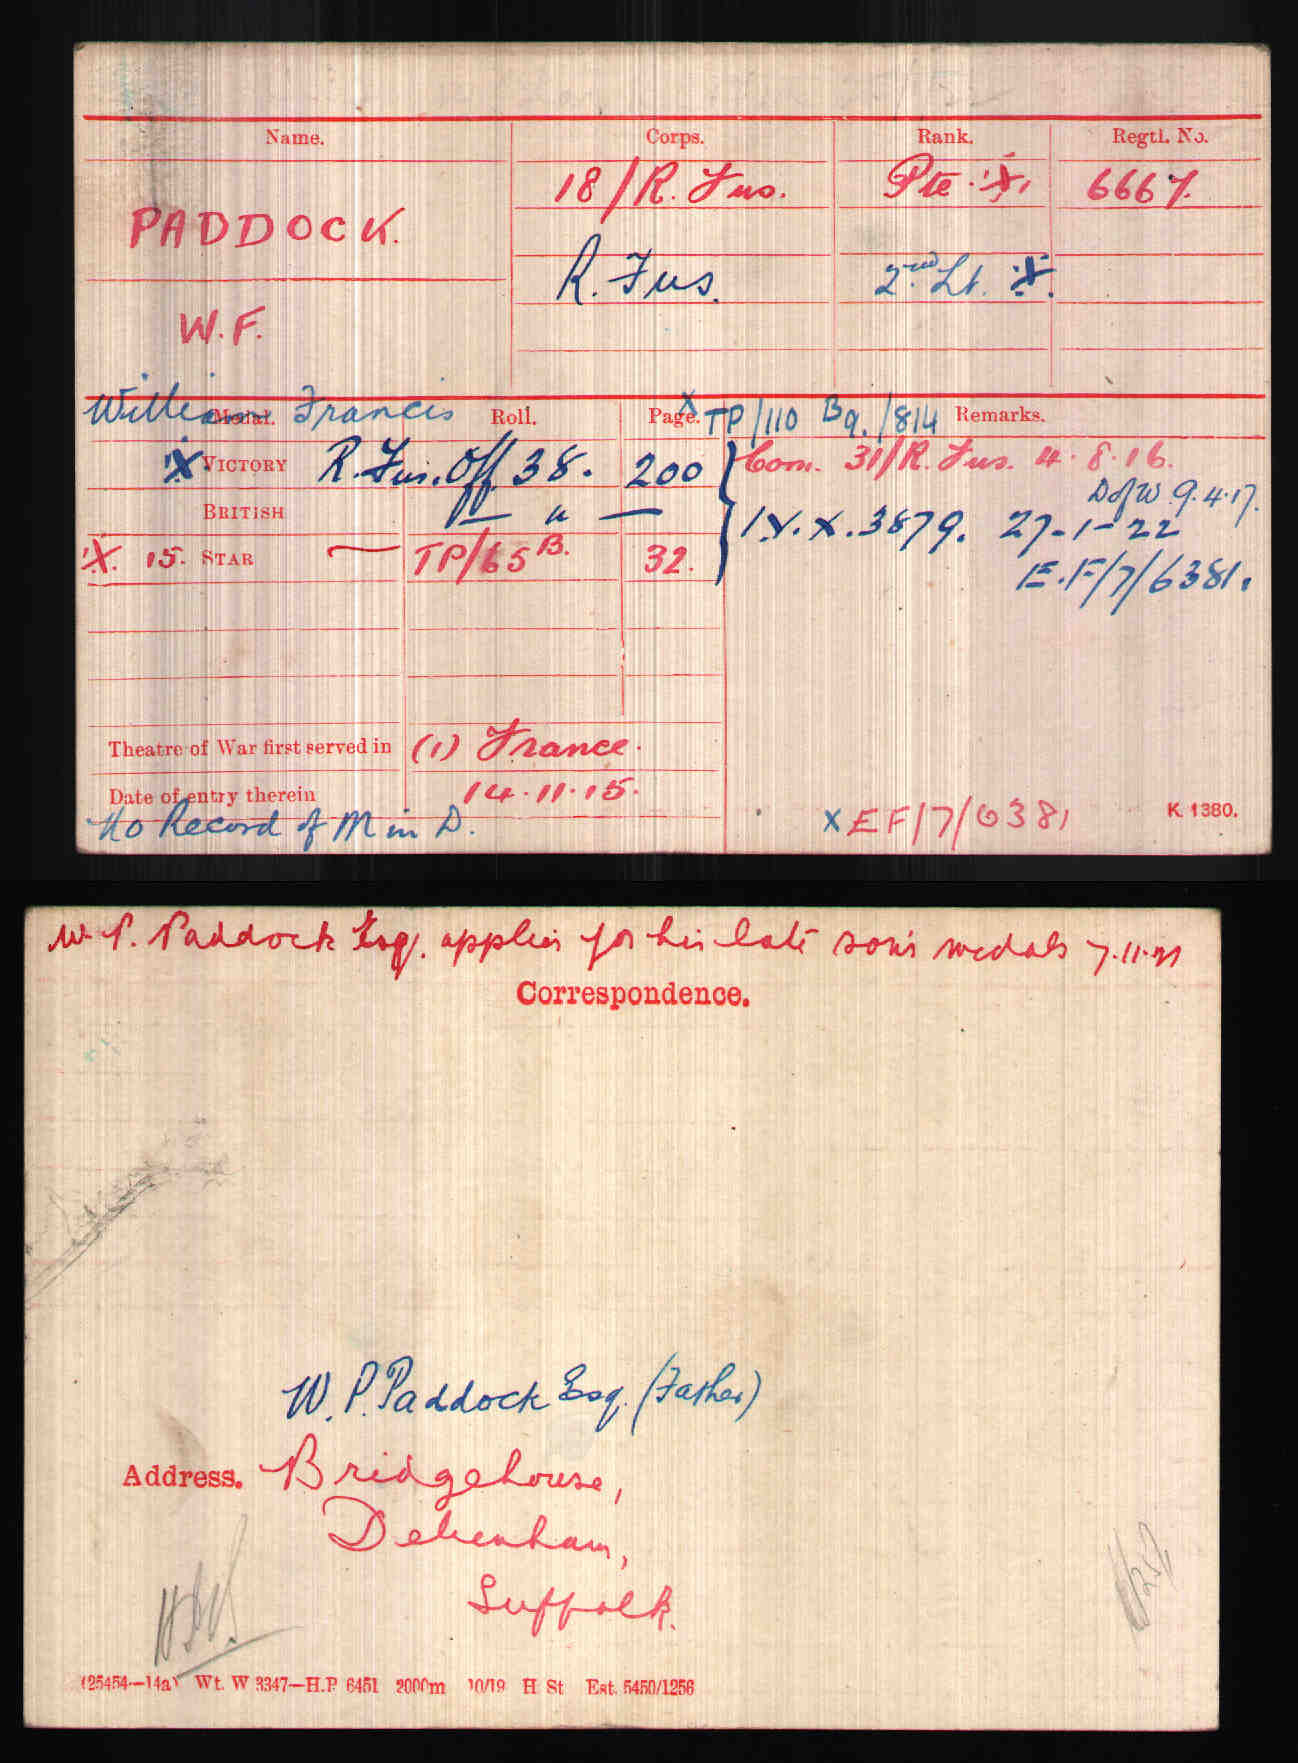 Name. Corps. Rank. Regtl. No.
18/R. Fus. Pte. X 6667.
PADDOCK.
R. Fus. 2nd Lt. X.
W.F.
William Francis
Medal. Roll. Page. X TP/110 B9./814 Remarks.
X VICTORY R. Fus. Off 38. 200 Com. 31/R. Fus. 4.8.16.
D of W. 9.4.17.
BRITISH — " — IV.X.3879. 27-1-22
X. 15. STAR — TP/65B. 32.
E.F/7/6381.
Theatre of War first served in (1) France.
Date of entry therein 14.11.15.
No Record of M in D.
X EF/7/6381 K. 1380.
W. P. Paddock Esq. applies for his late son's medals 7.11.21
Correspondence.
W. P. Paddock Esq. (Father)
Address. Bridgehouse,
Debenham,
Suffolk.
(25454—14a) Wt. W 3347—H.P 6451 2000m 10/19 H St Est. 5450/1256